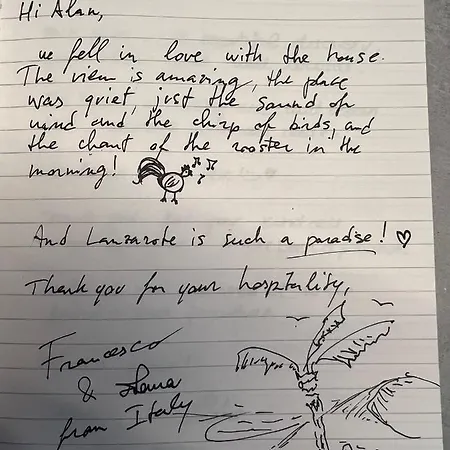 Hi Alan,
we fell in love with the house.
The view is amazing, the place
was quiet, just the sound of
wind and the chirp of birds, and
the chant of the rooster in the
morning!
And Lanzarote is such a paradise!
Thank you for your hospitality,
Francesco
&
from Italy